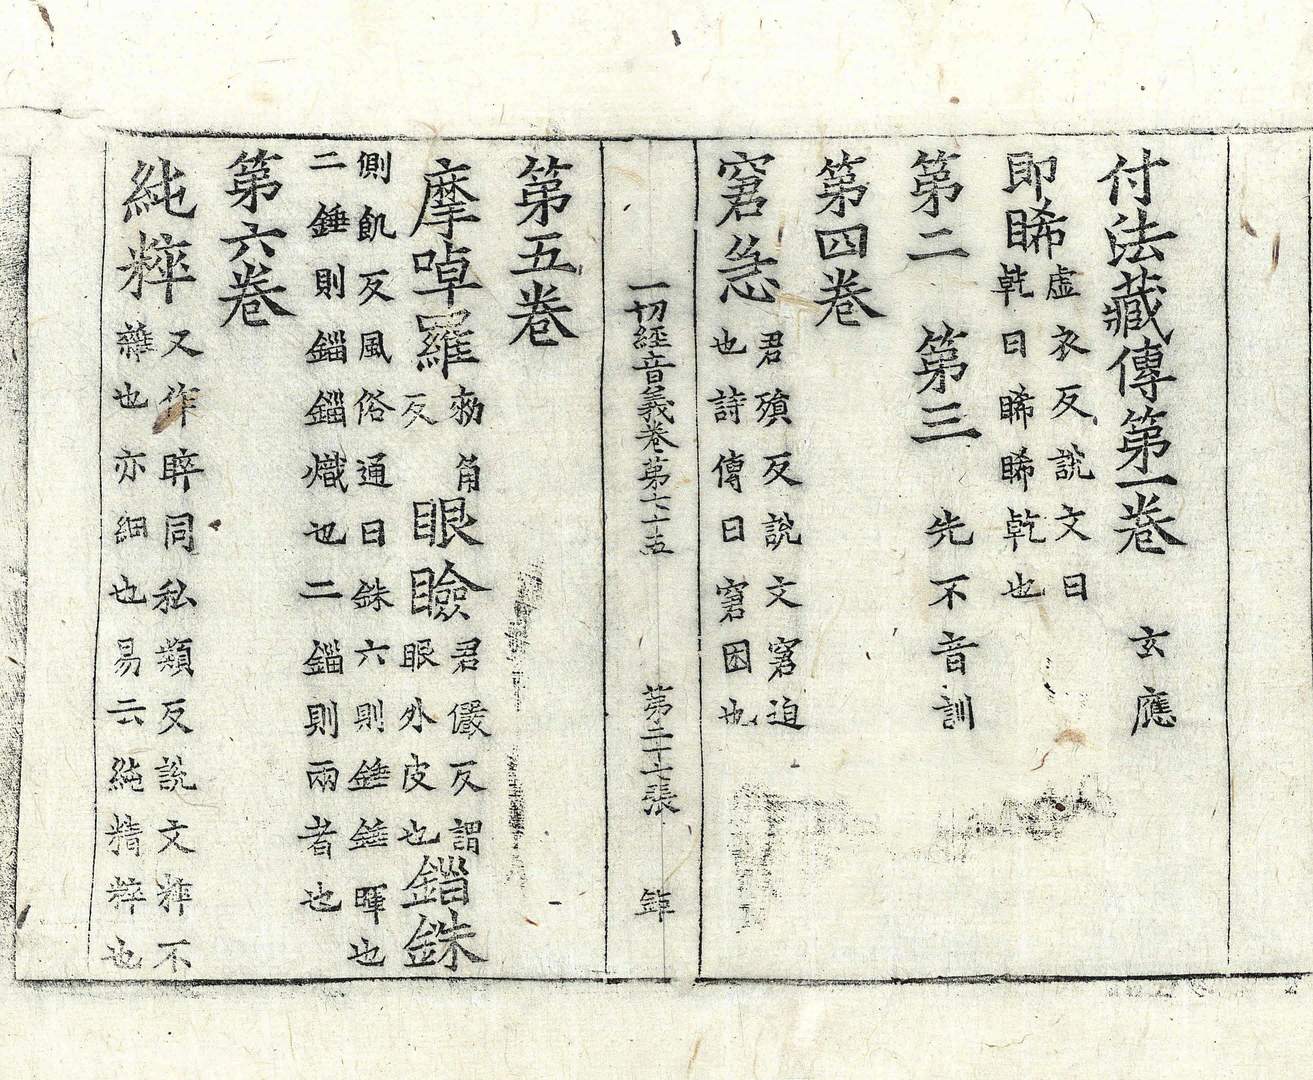 付法藏傳第一卷 玄應
即睎虛衣反說文曰
乾曰睎睎乾也
第二 第三 先不音訓
第四卷
窘急君殞反說文窘迫
也詩傳曰窘困也
一切經音義卷第七十五 第二十七張 鉾
第五卷
摩啅羅勑角
反
眼瞼君儼反謂
眼外皮也
錙銖
側飢反風俗通曰銖六則錘錘暉也
二錘則錙錙熾也二錙則兩者也
第六卷
純粹又作睟同私類反說文粹不
雜也亦細也易云純精粹也